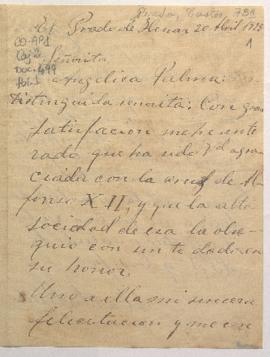 Prado, Castor, 7BR
El Prado de Henar 20 Abril 1925
CO-AP1
Caj 2
Doc. 499
Fol. 1
1
Señorita
Angélica Palma:
Distinguida señorita: Con gran
satisfacion me he ente
rado que ha sido Vd agra
ciada con la cruz de Al
fonso XII, y que la alta
sociedad de esa la obse
quio con un te dado en
su honor.
Uno a ella mi sincera
felicitacion y me en